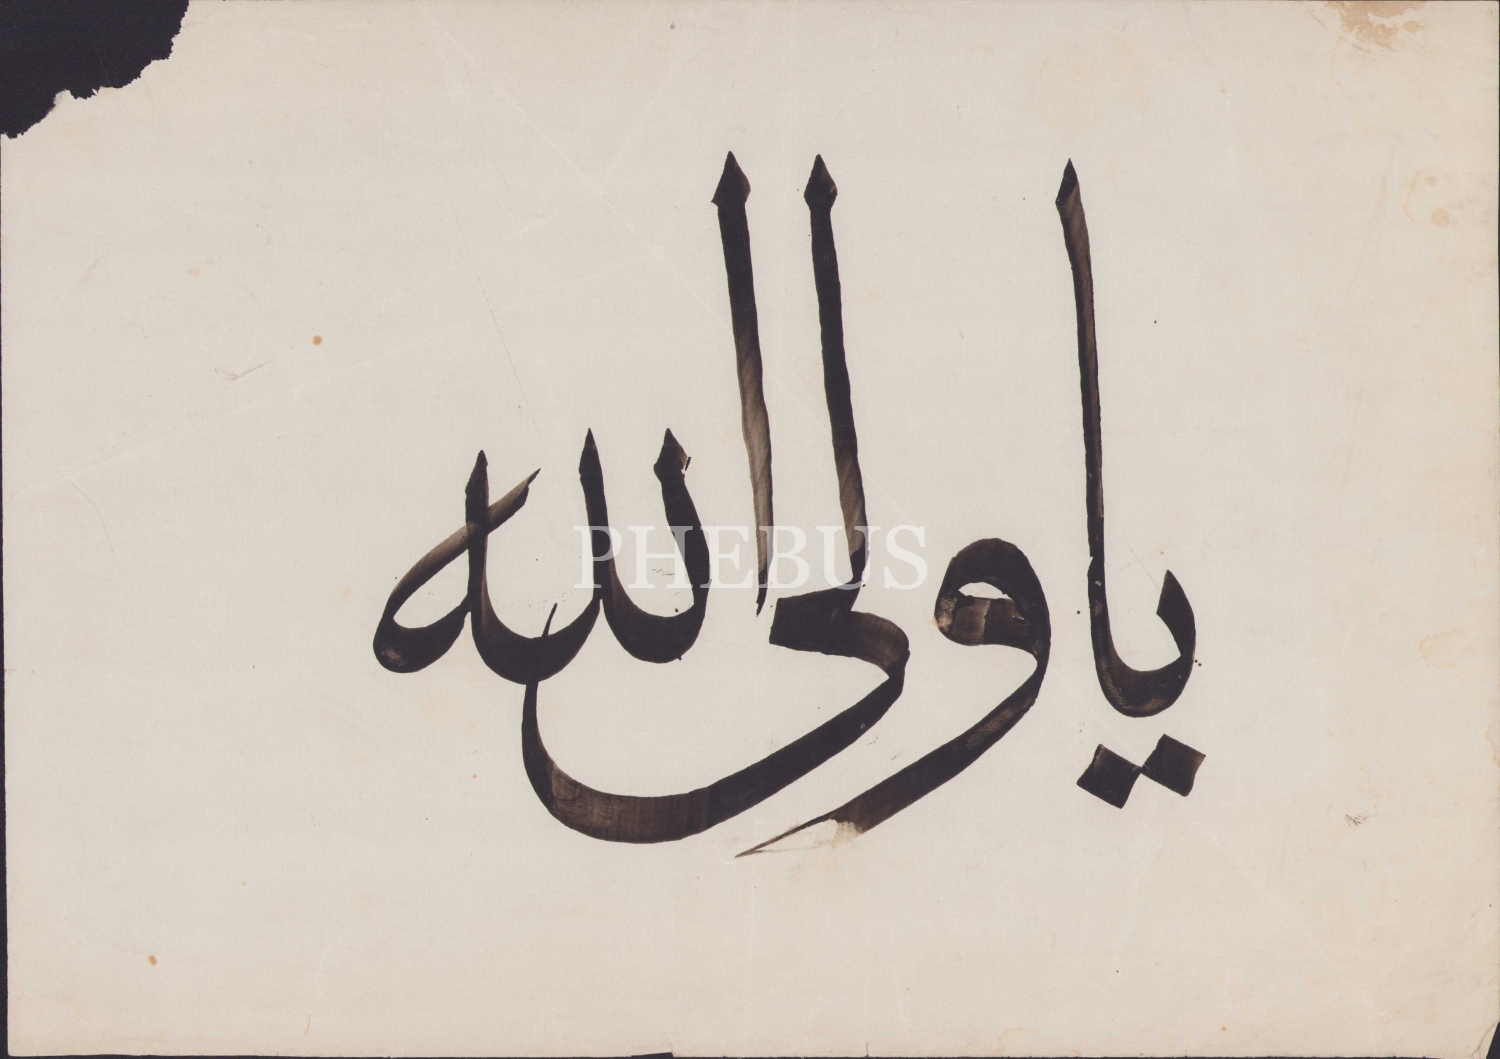 يا ولى الله
PHEBUS